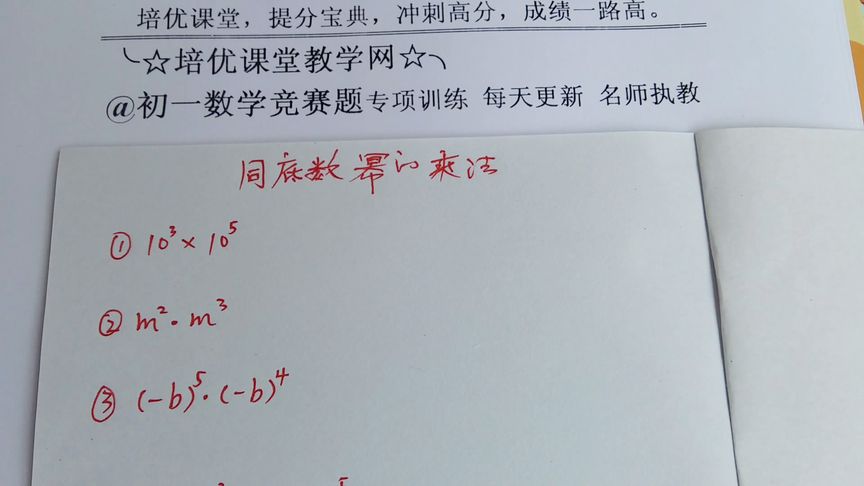 培优课堂，提分宝典，冲刺高分，成绩一路高。
☆培优课堂教学网☆
@初一数学竞赛题专项训练 每天更新 名师执教
同底数幂的乘法
① 10³×10⁵
② m²·m³
③ (-b)⁵·(-b)⁴